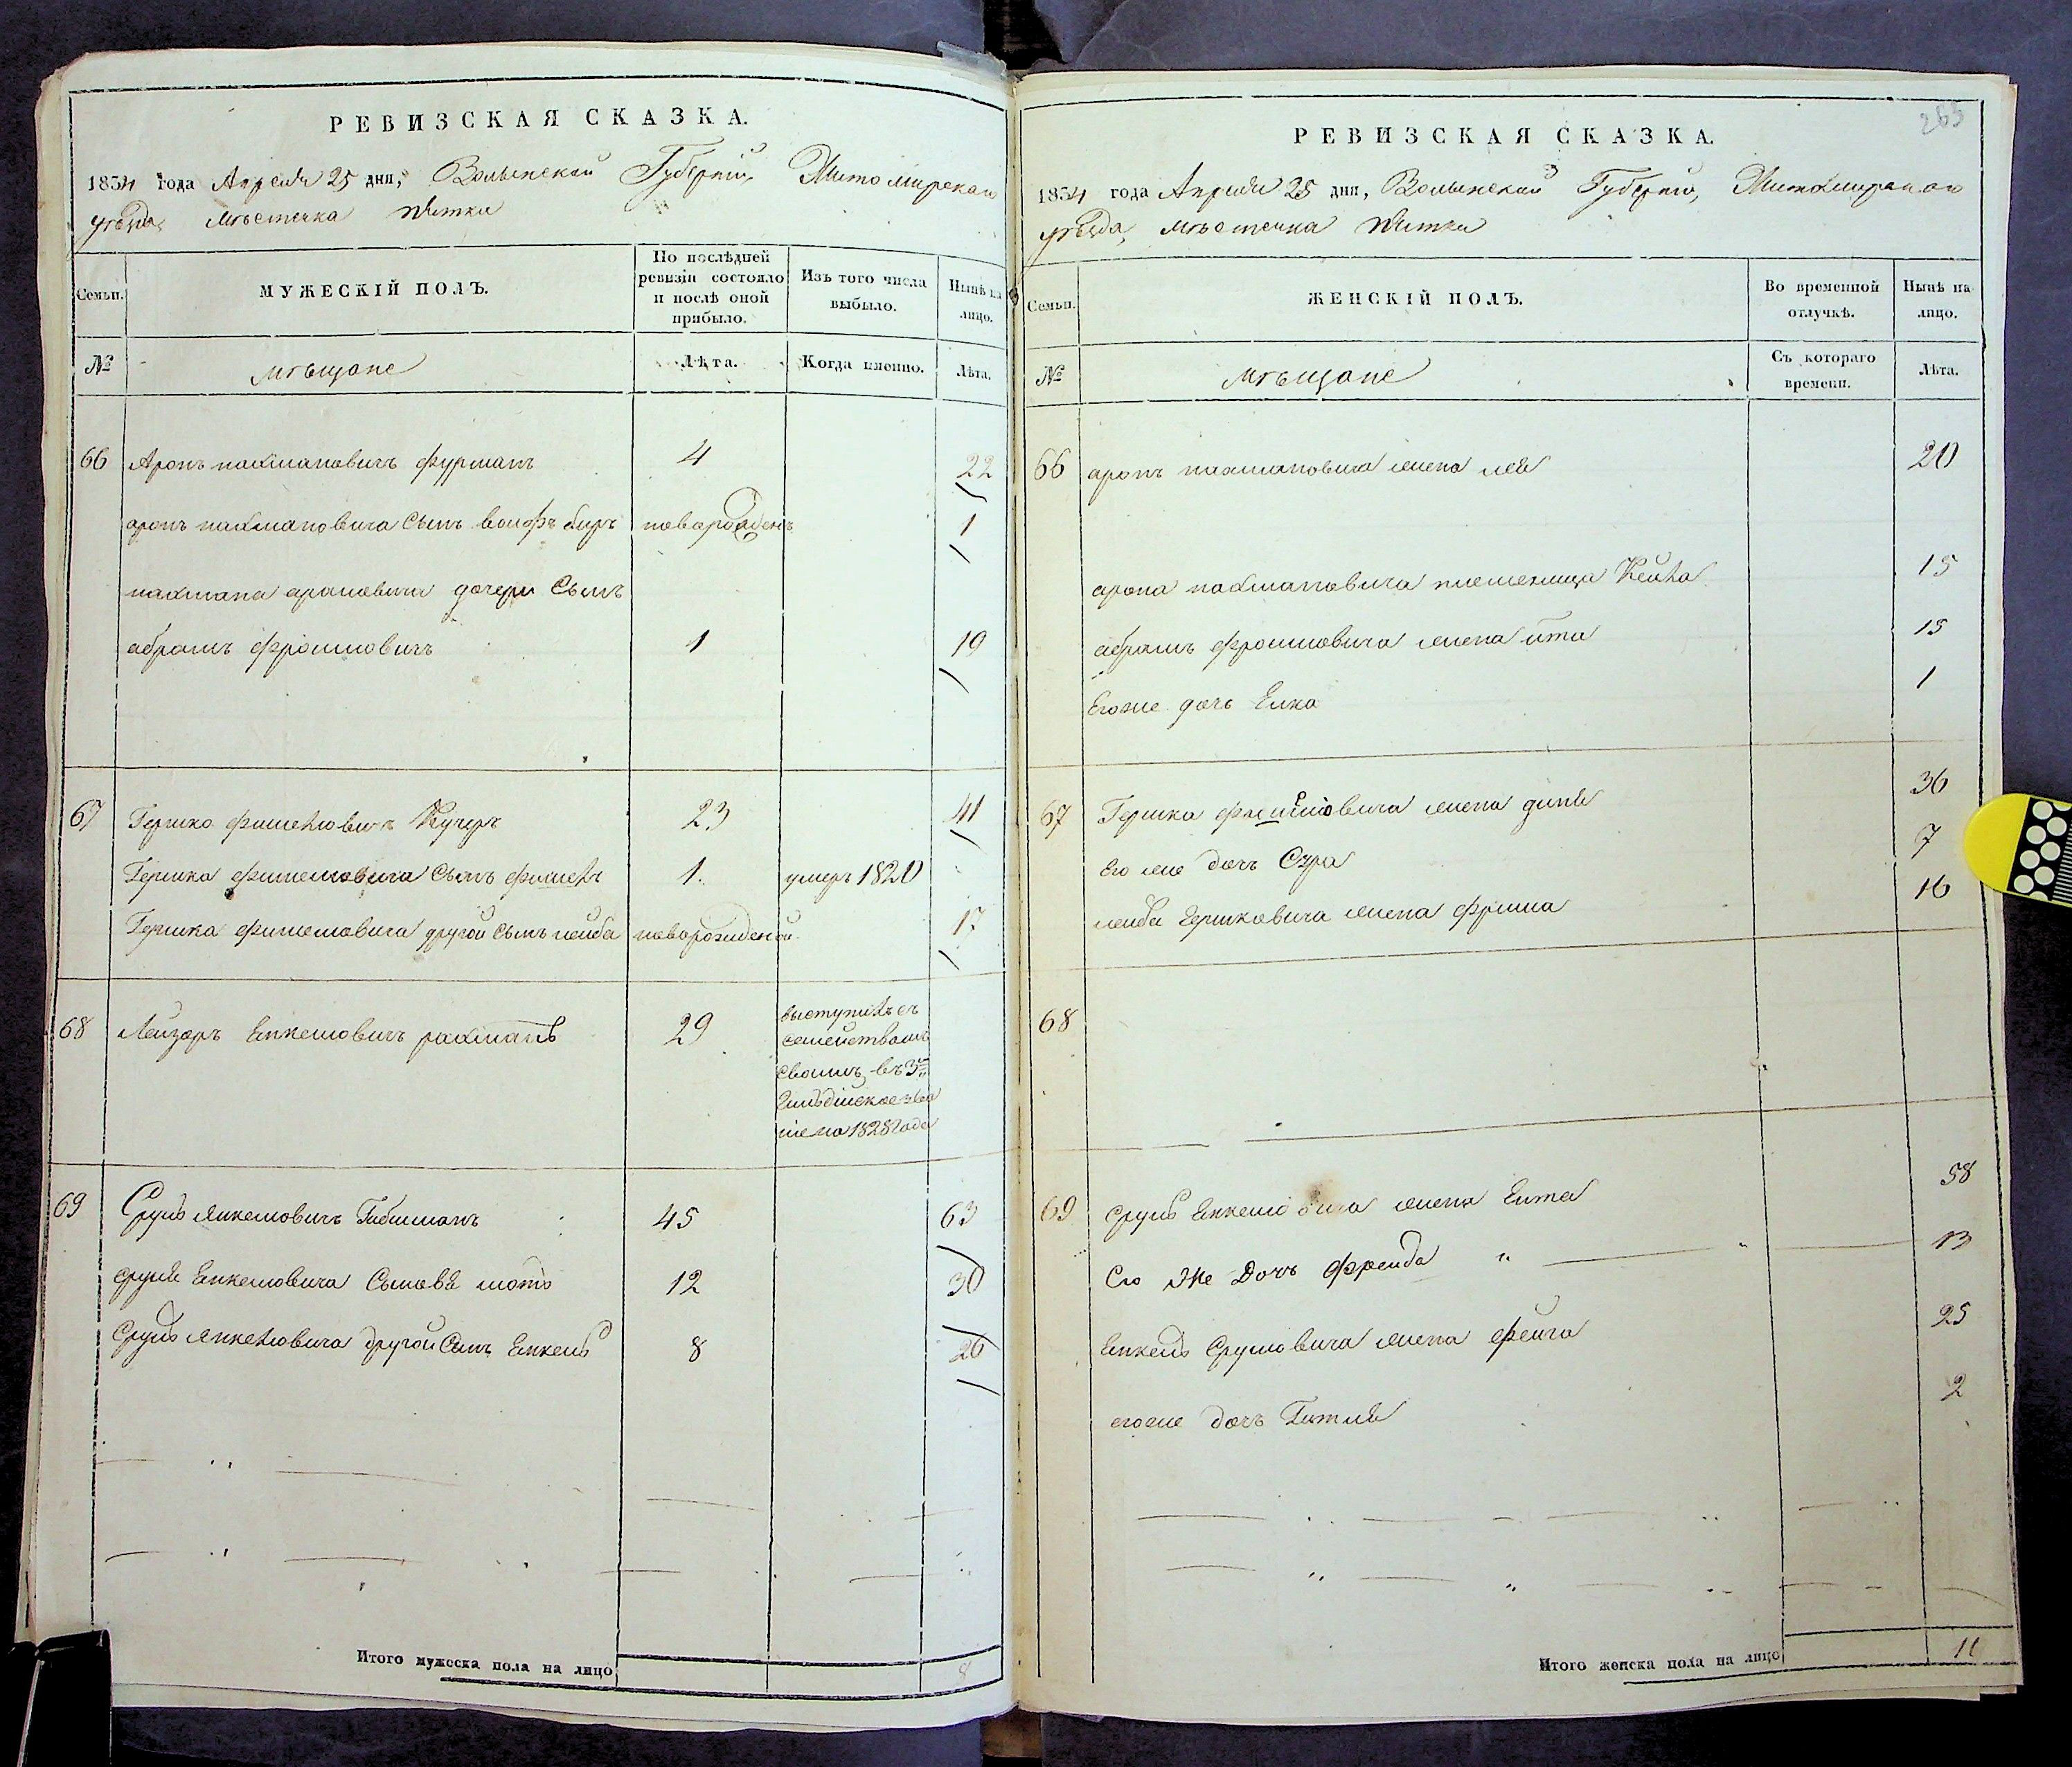 РЕВИЗСКАЯ СКАЗКА.
1834 года Апреля 25 дня, Волынской Губернїи, Житомирскаго
уѣзда, мѣстечка
Семьи.
МУЖЕСКІЙ ПОЛЪ.
По послѣдней ревизіи состояло и послѣ оной прибыло.
Изъ того числа выбыло.
Нынѣ на лицо.
№
мѣщане
Лѣта.
Когда именно.
Лѣта.
66 Аронъ нахмановичъ фурманъ 4 22
аронъ нахмановича Сынъ волфъ беръ новорожденъ 1
нахмана ароновича дочери Сынъ
абрамъ фроимовичъ 1 19
67 Гершко фишелювичъ Кучеръ 23 41
Гершка фишелювича Сынъ фишель 1. умеръ 1820
Гершка фишелювича другой Сынъ лейба новорожденой 17
68 Лейзеръ Енкелювичъ рахманъ 29 выступилъ съ
семействомъ
своимъ въ 3ю
Гильдїйское зва
нїе по 1828 года
69 Сруль Янкелювичъ 45 63
сруля Енкелювича Сыновя мотё 12 30
Сруль Янкелювича другой Сынъ Енкель 8 26
Итого мужеска пола на лицо 8
265
РЕВИЗСКАЯ СКАЗКА.
1834 года Апреля 25 дня, Волынской Губернїи, Житомирскаго
уѣзда, мѣстечка
Семьи.
ЖЕНСКІЙ ПОЛЪ.
Во временной отлучкѣ.
Нынѣ на лицо.
№
мѣщане
Съ котораго времени.
Лѣта.
66 аронъ нахмановича жена лея 20
арона нахмановича племеница Кейла 15
абрамъ фроимовича жена ита 15
Егоже дочь Елка 1
67 Гершка фишелювича жена диня 36
Его же дочъ Сура 7
лейба Гершковича жена фрима 16
68
69 Сруль Енкелювича жена Ента 58
Его же Дочъ фрейда 13
Енкель Срулювича жена фейга 25
егоже дочъ Гитля 2
Итого женска пола на лицо